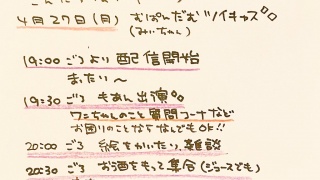 4月27日(月) むぱんだむツイキャス
(みぃちゃん)
19:00ごろより配信開始
まったり〜
19:30ごろ もあん出演
ワンちゃんのこと質問コーナなど
お困りのことならなんでもOK!!
20:00ごろ 絵をかいたり、雑談
20:30ごろ お酒をもって集合(ジュースでも)